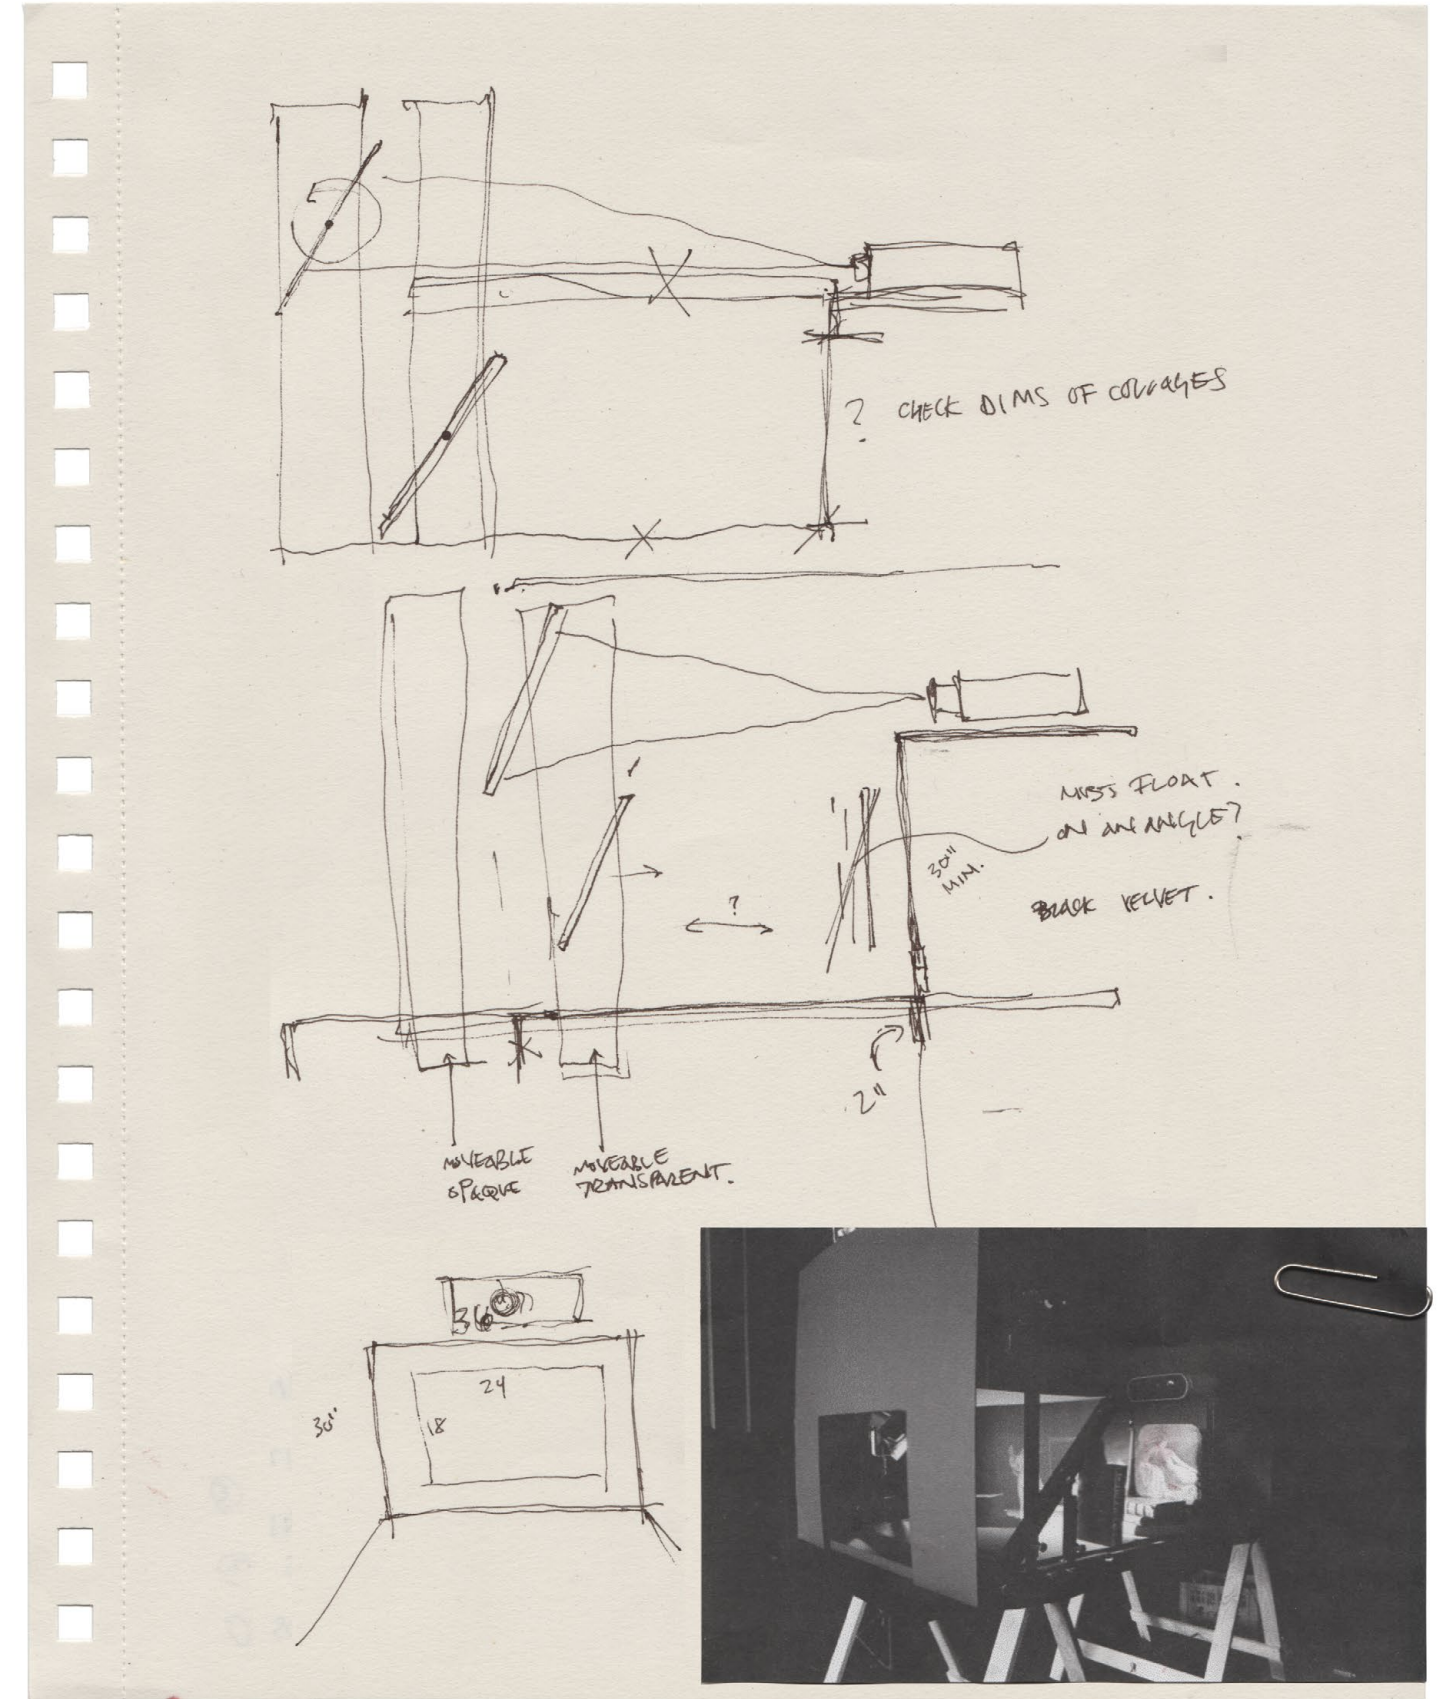 ? CHECK DIMS OF COLLAGES
MUST FLOAT.
ON AN ANGLE?
30" MIN.
BLACK VELVET.
?
2"
MOVEABLE
OPAQUE
MOVEABLE
TRANSPARENT.
36
24
30"
18